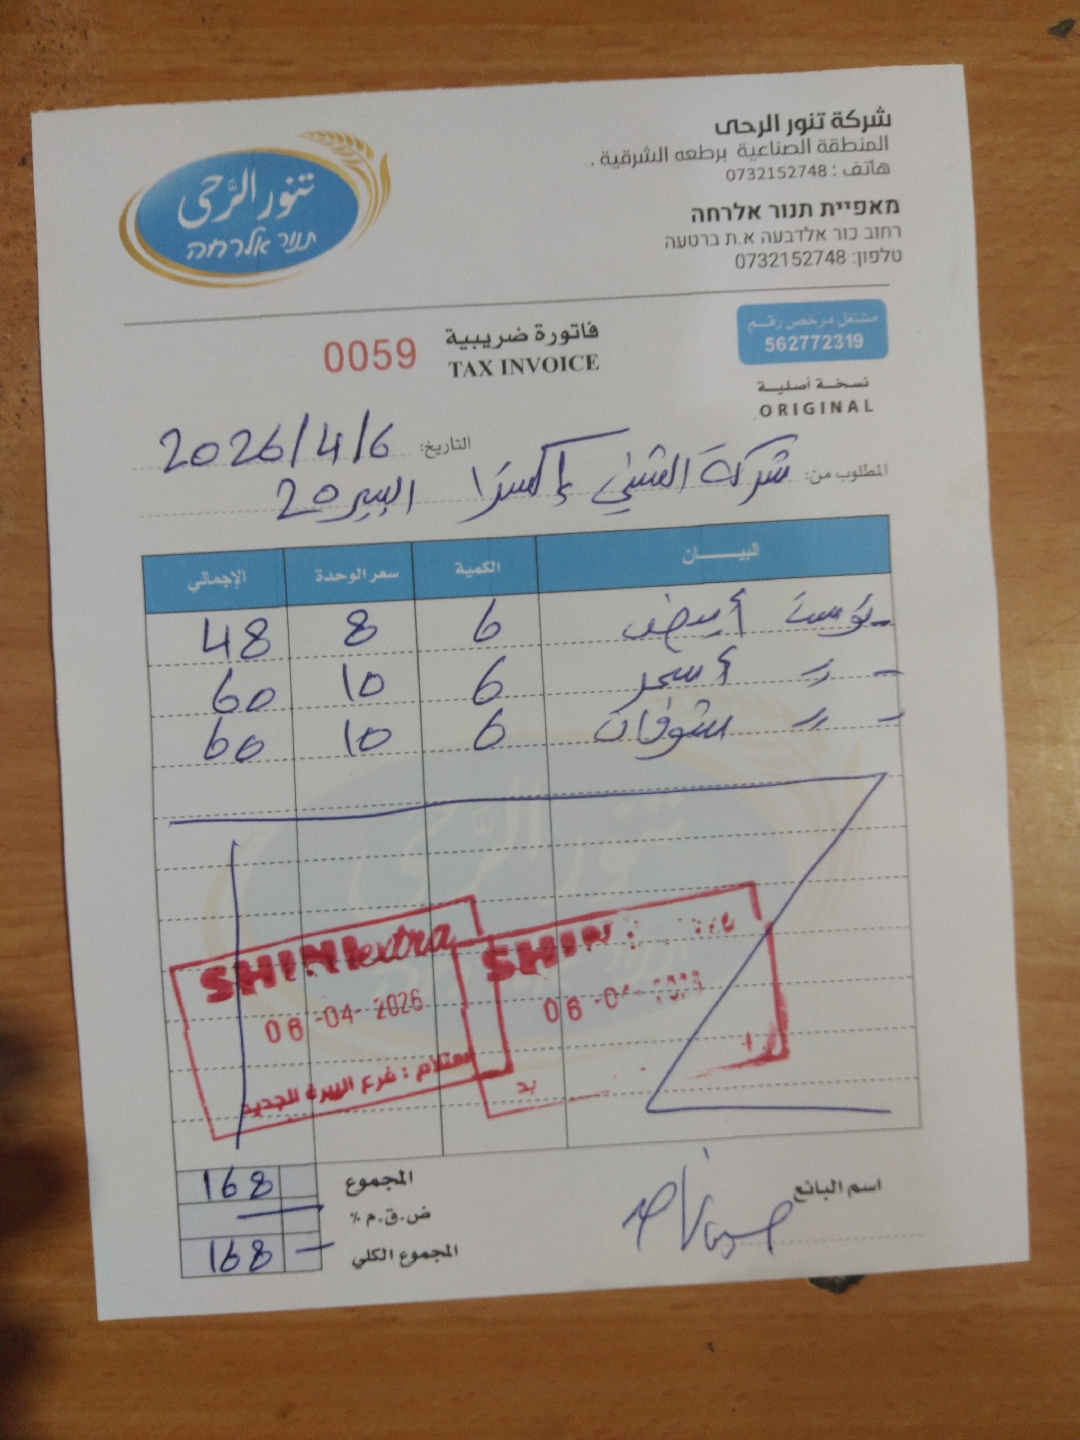 تنور الرحى
תנור אלרחה
شركة تنور الرحى
المنطقة الصناعية برطعه الشرقية .
هاتف : 0732152748
מאפיית תנור אלרחה
רחוב כור אלדבעה א.ת ברטעה
טלפון: 0732152748
مشتغل مرخص رقم
562772319
فاتورة ضريبية
TAX INVOICE
0059
نسخة أصلية
ORIGINAL
التاريخ: 2026/4/6
المطلوب من: شركة الشني إكسترا البيرة 2
البيان الكمية سعر الوحدة الإجمالي
- توست أبيض 6 8 48
- 〃 أسمر 6 10 60
- 〃 شوفان 6 10 60
SHINI extra
08-04-2026
فرع البيرة الجديد
SHIN
المجموع 168
ض.ق.م %
المجموع الكلي 168
اسم البائع